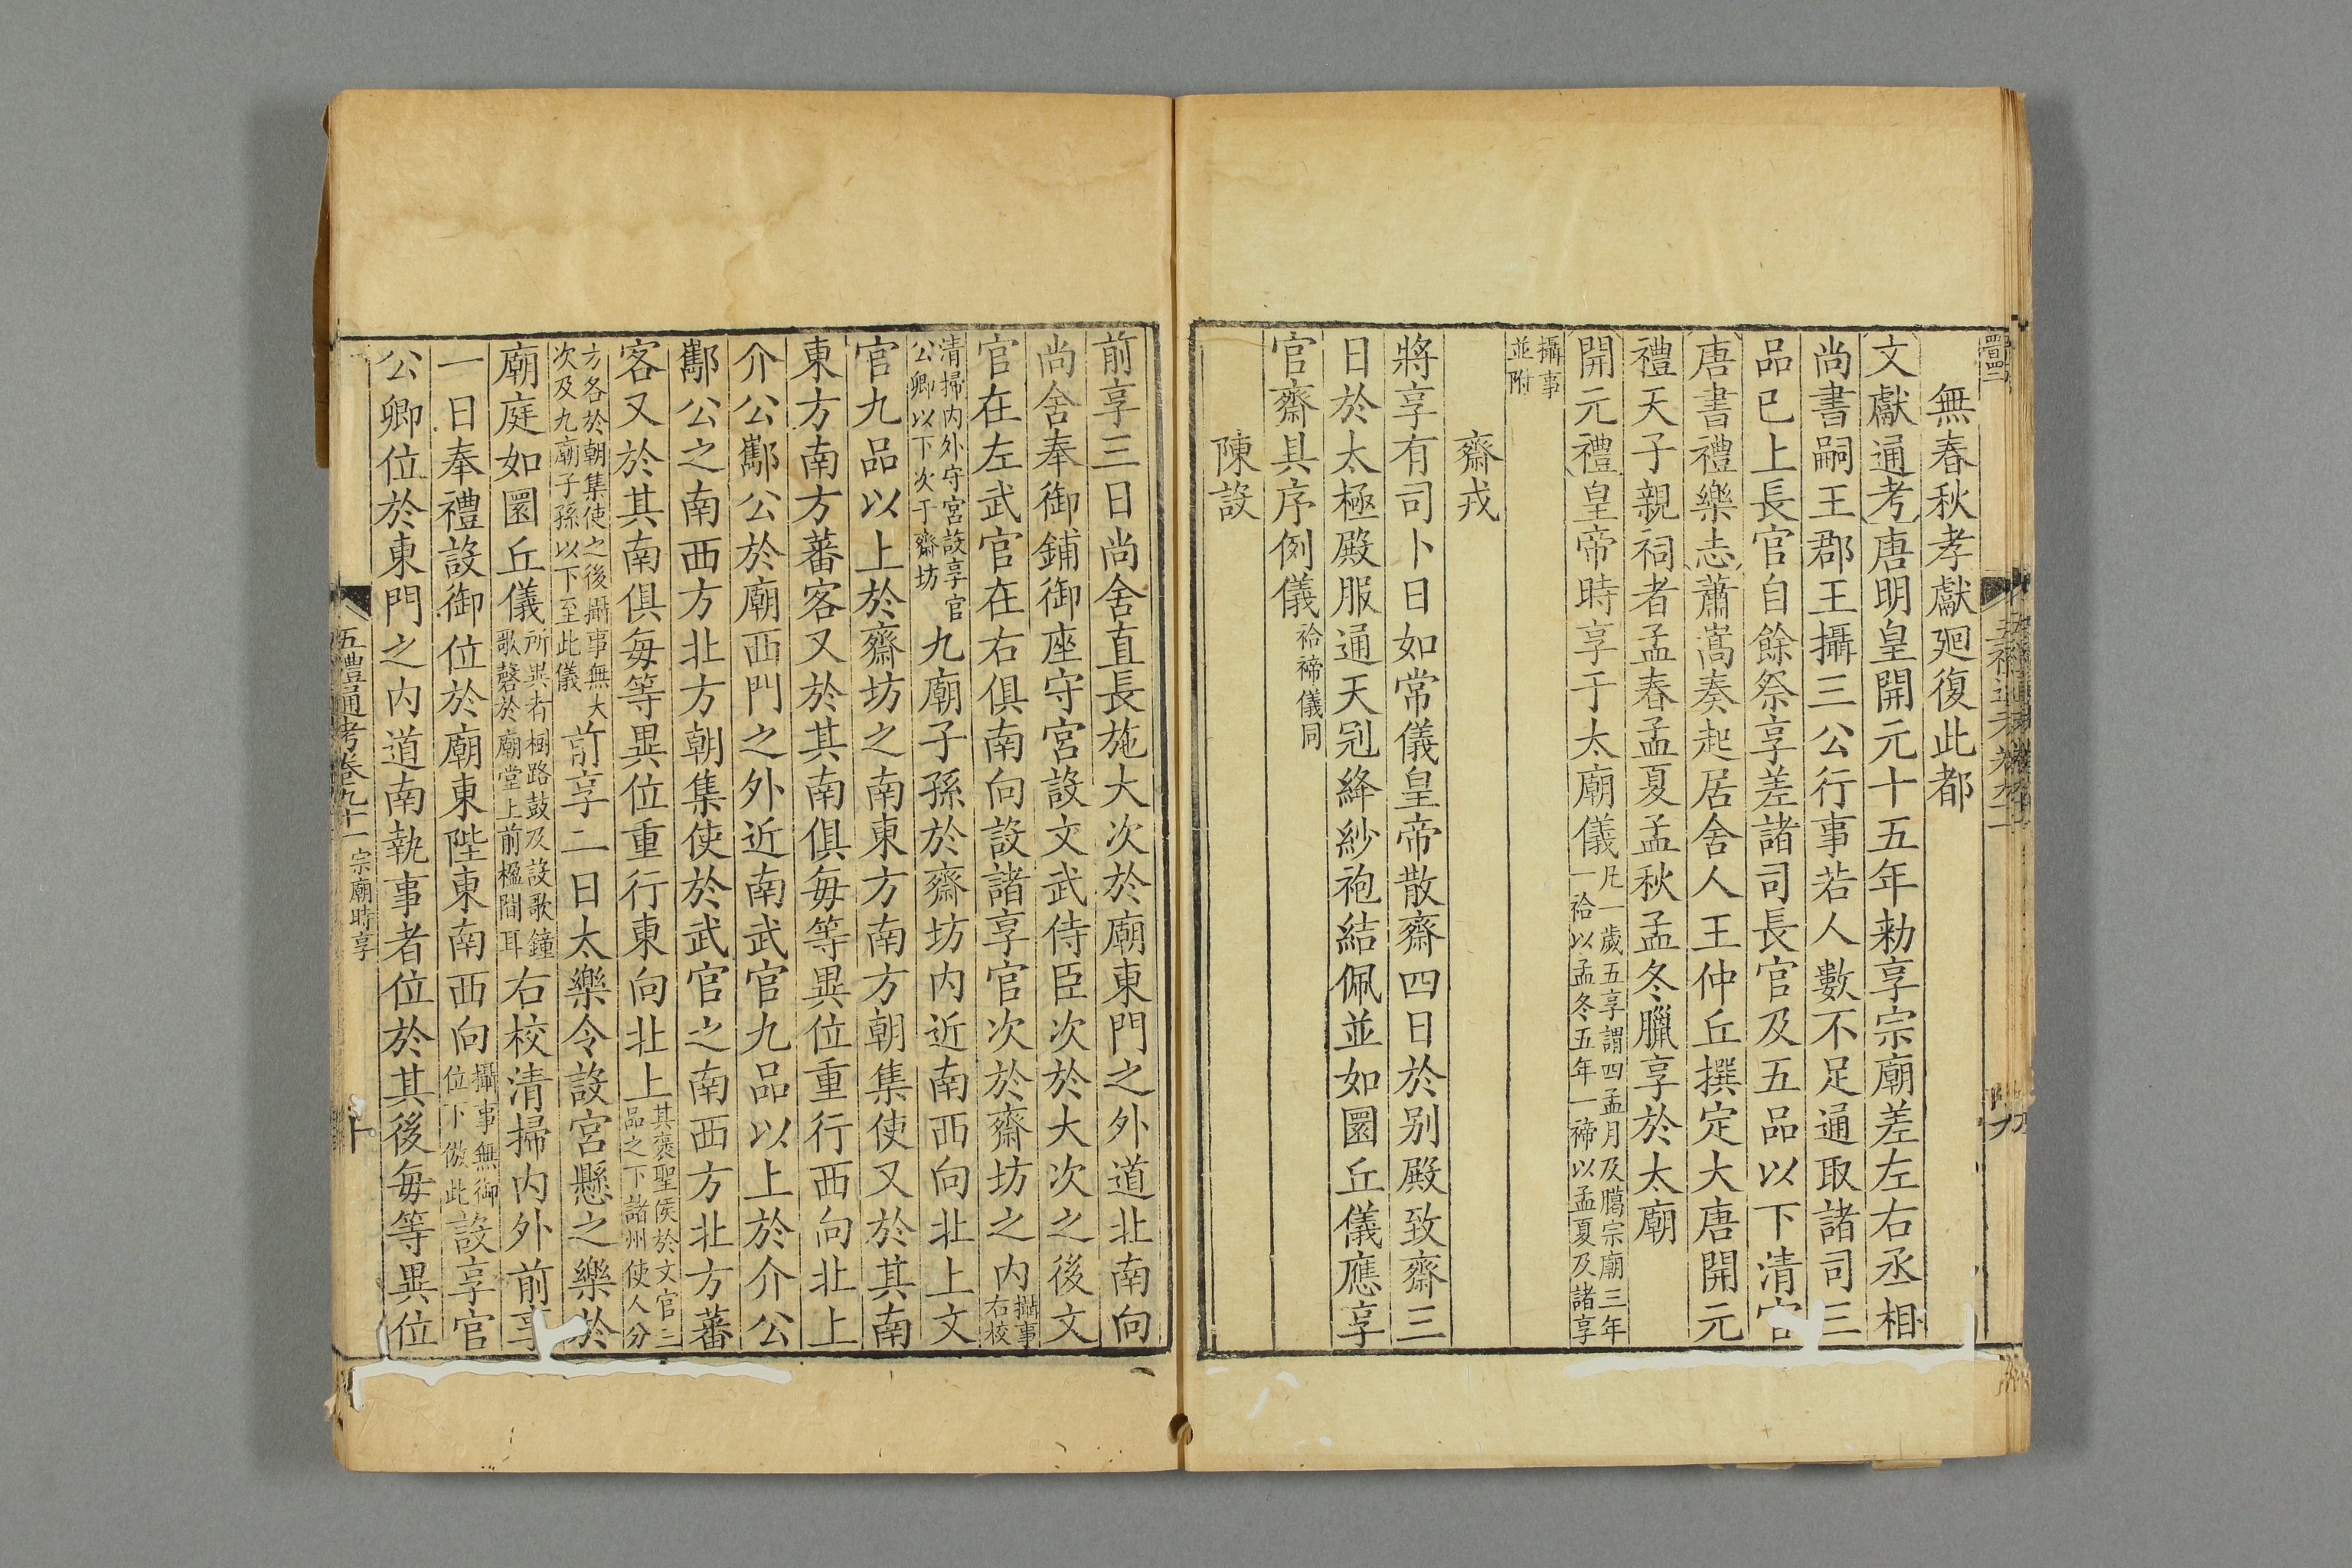 無春秋孝獻廻復此都
文獻通考唐明皇開元十五年勑享宗廟差左右丞相
尚書嗣王郡王攝三公行事若人數不足通取諸司三
品已上長官自餘祭享差諸司長官及五品以下清官
唐書禮樂志蕭嵩奏起居舍人王仲丘撰定大唐開元
禮天子親祠者孟春孟夏孟秋孟冬臘享於太廟
開元禮皇帝時享于太廟儀凡一歲五享謂四孟月及臘宗廟三年
一祫以孟冬五年一禘以孟夏及諸享
攝事
並附
齋戒
將享有司卜日如常儀皇帝散齋四日於别殿致齋三
日於太極殿服通天冠絳紗袍結佩並如圜丘儀應享
官齋具序例儀祫禘儀同
陳設
前享三日尚舍直長施大次於廟東門之外道北南向
尚舍奉御鋪御座守宮設文武侍臣次於大次之後文
官在左武官在右俱南向設諸享官次於齋坊之内攝事
右校
清掃内外守宮設享官
公卿以下次于齋坊
九廟子孫於齋坊内近南西向北上文
官九品以上於齋坊之南東方南方朝集使又於其南
東方南方蕃客又於其南俱每等異位重行西向北上
介公酅公於廟西門之外近南武官九品以上於介公
酅公之南西方北方朝集使於武官之南西方北方蕃
客又於其南俱每等異位重行東向北上其褒聖侯於文官三
品之下諸州使人分
方各於朝集使之後攝事無大
次及九廟子孫以下至此儀
前享二日太樂令設宮懸之樂於
廟庭如圜丘儀所異者柷路鼓及設歌鐘
歌磬於廟堂上前楹間耳
右校清掃内外前享
一日奉禮設御位於廟東陛東南西向攝事無御
位下倣此
設享官
公卿位於東門之内道南執事者位於其後每等異位
五禮通考卷九十一
宗廟時享
十